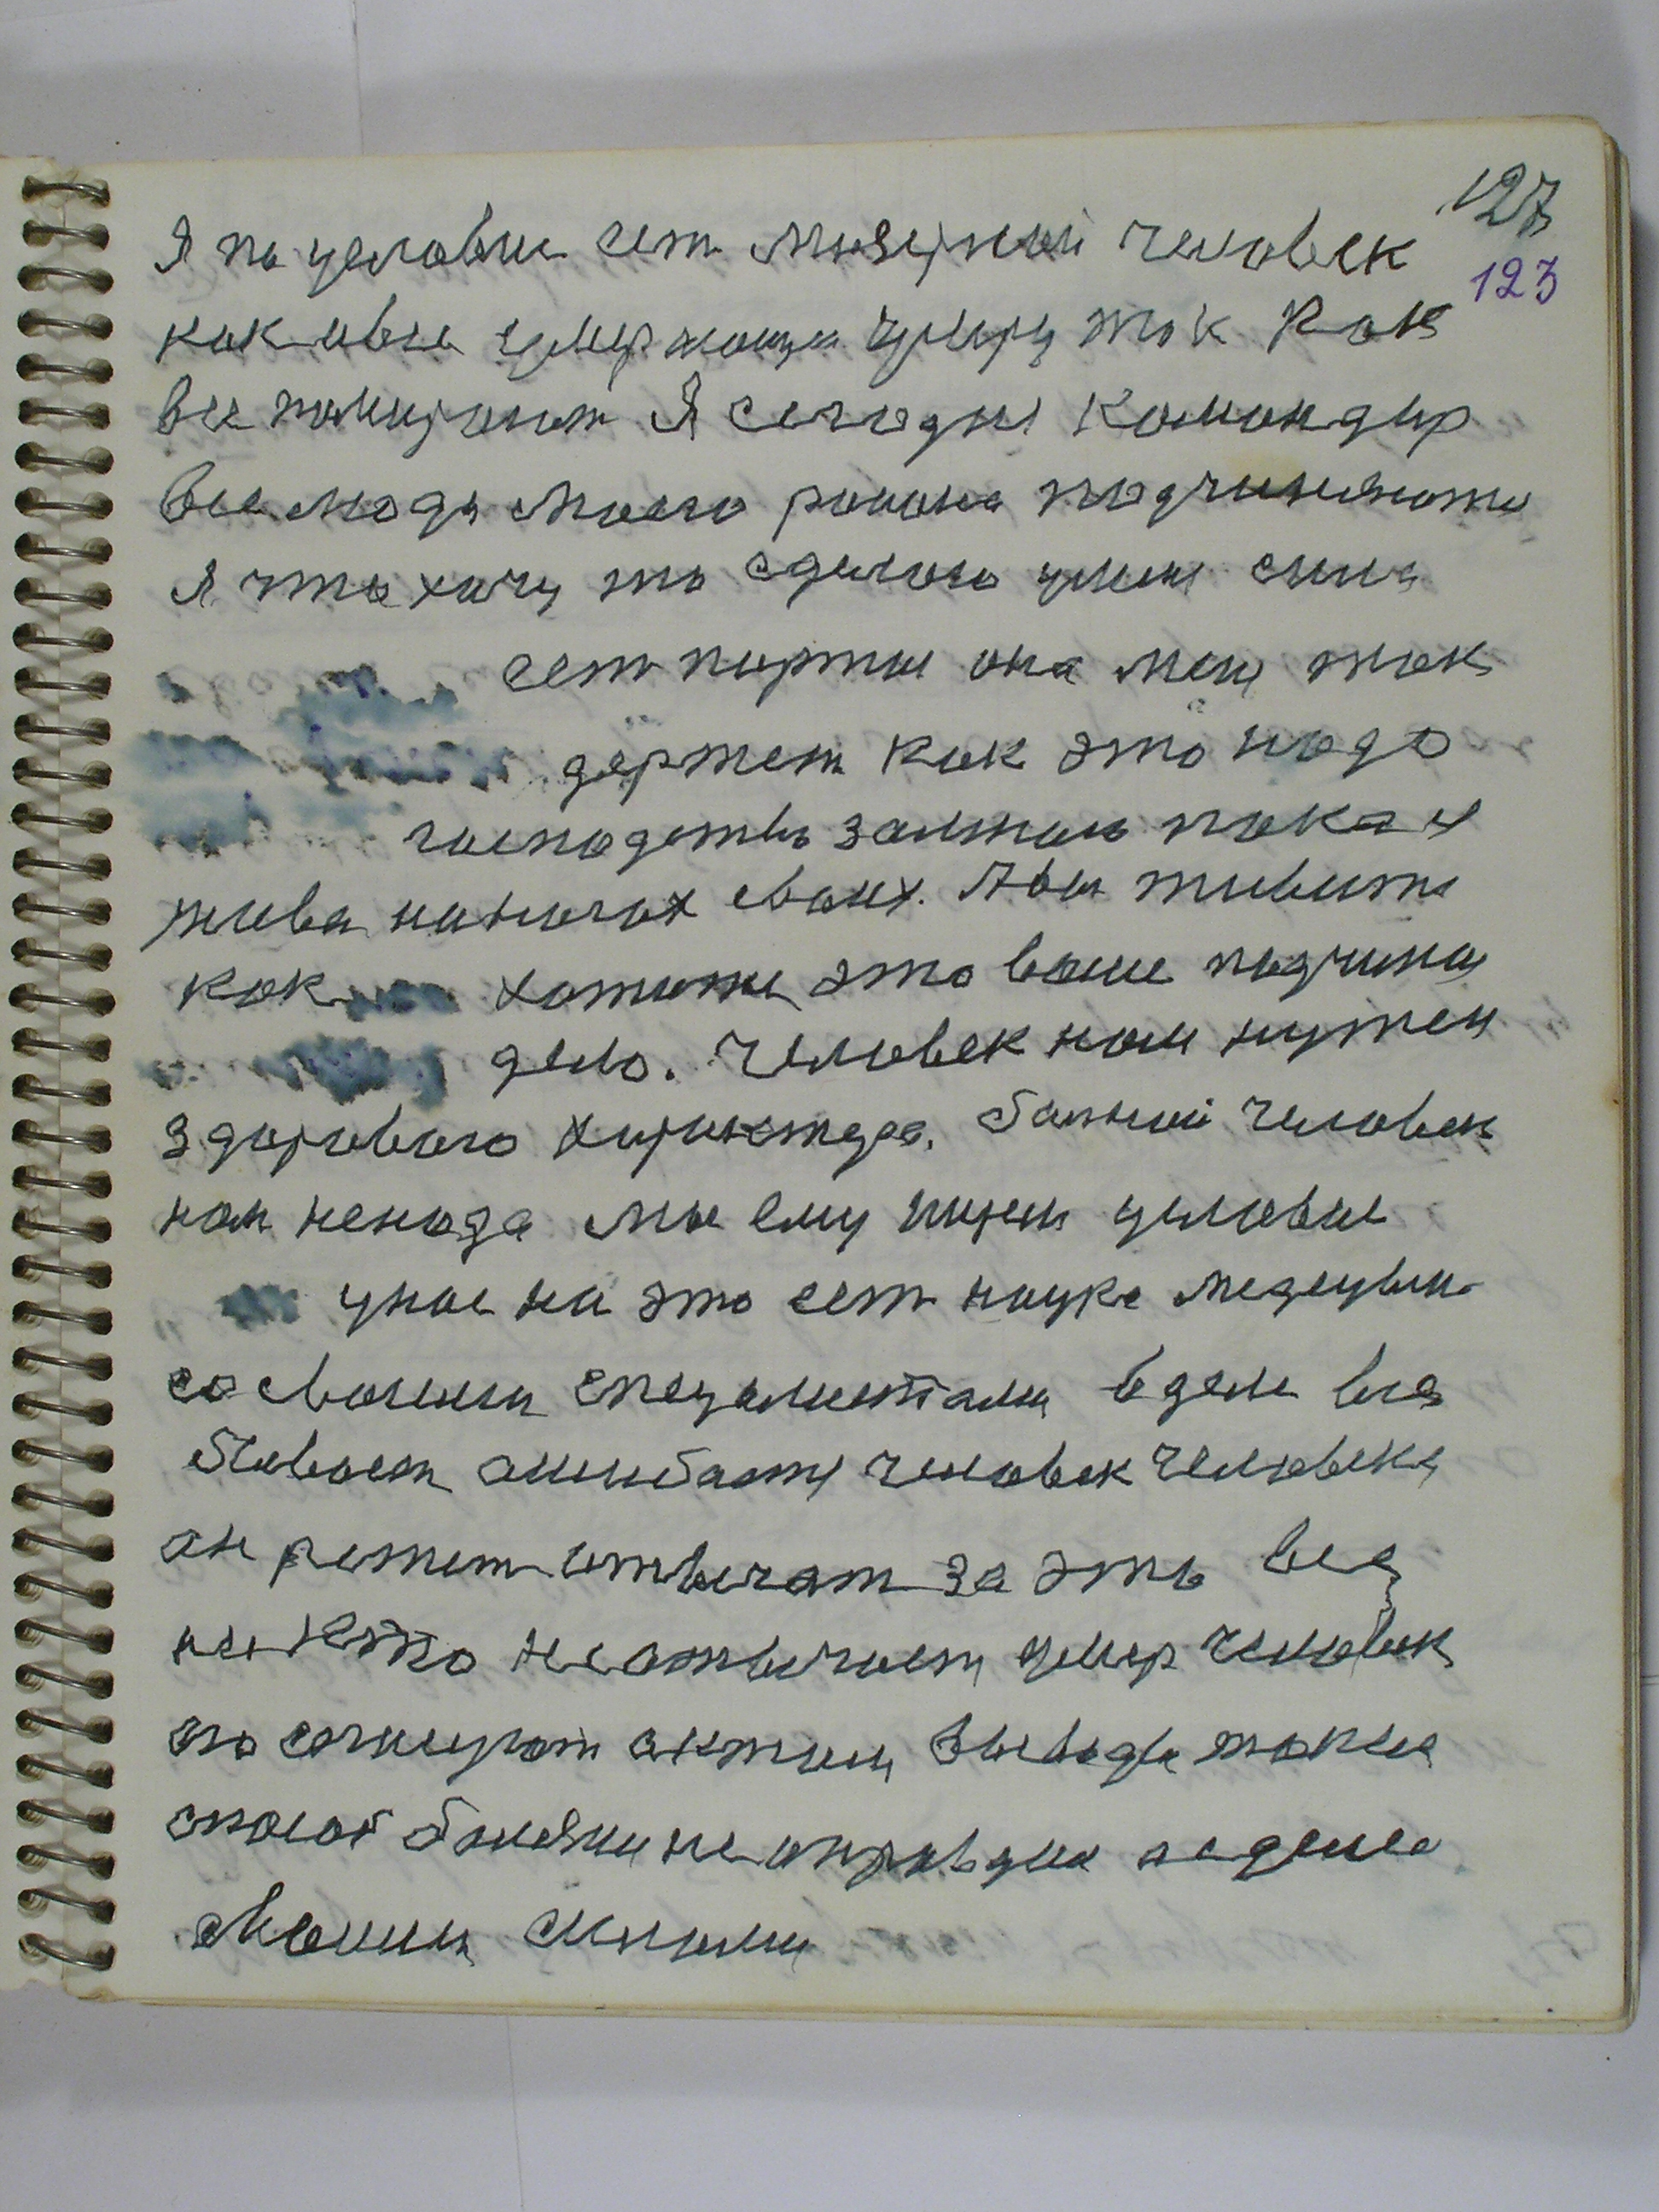 127
123
Я по условии ест мизерный человек
как и все умирающи умру так как
все помирают Я сегодня командир
все люди моего района подчиняются
Я что хочу то сделаю у меня сила
ест партия она меня так
держет как это надо
господство занимаю пока я
жива на ногах своих. А вы живите
как хотите это ваше подчина
дело. Человек нам нужен
здорового характера. Больной человек
нам ненада мы ему ищем условие
у нас на это ест наука медецина
со своими специалистами в деле все
бывает ошибаетя человек человека
он режет отвечат за это все
никто не отвечает умер человек
спо актом выводы такие
способ болезни не оправдал а сделал
своими силами